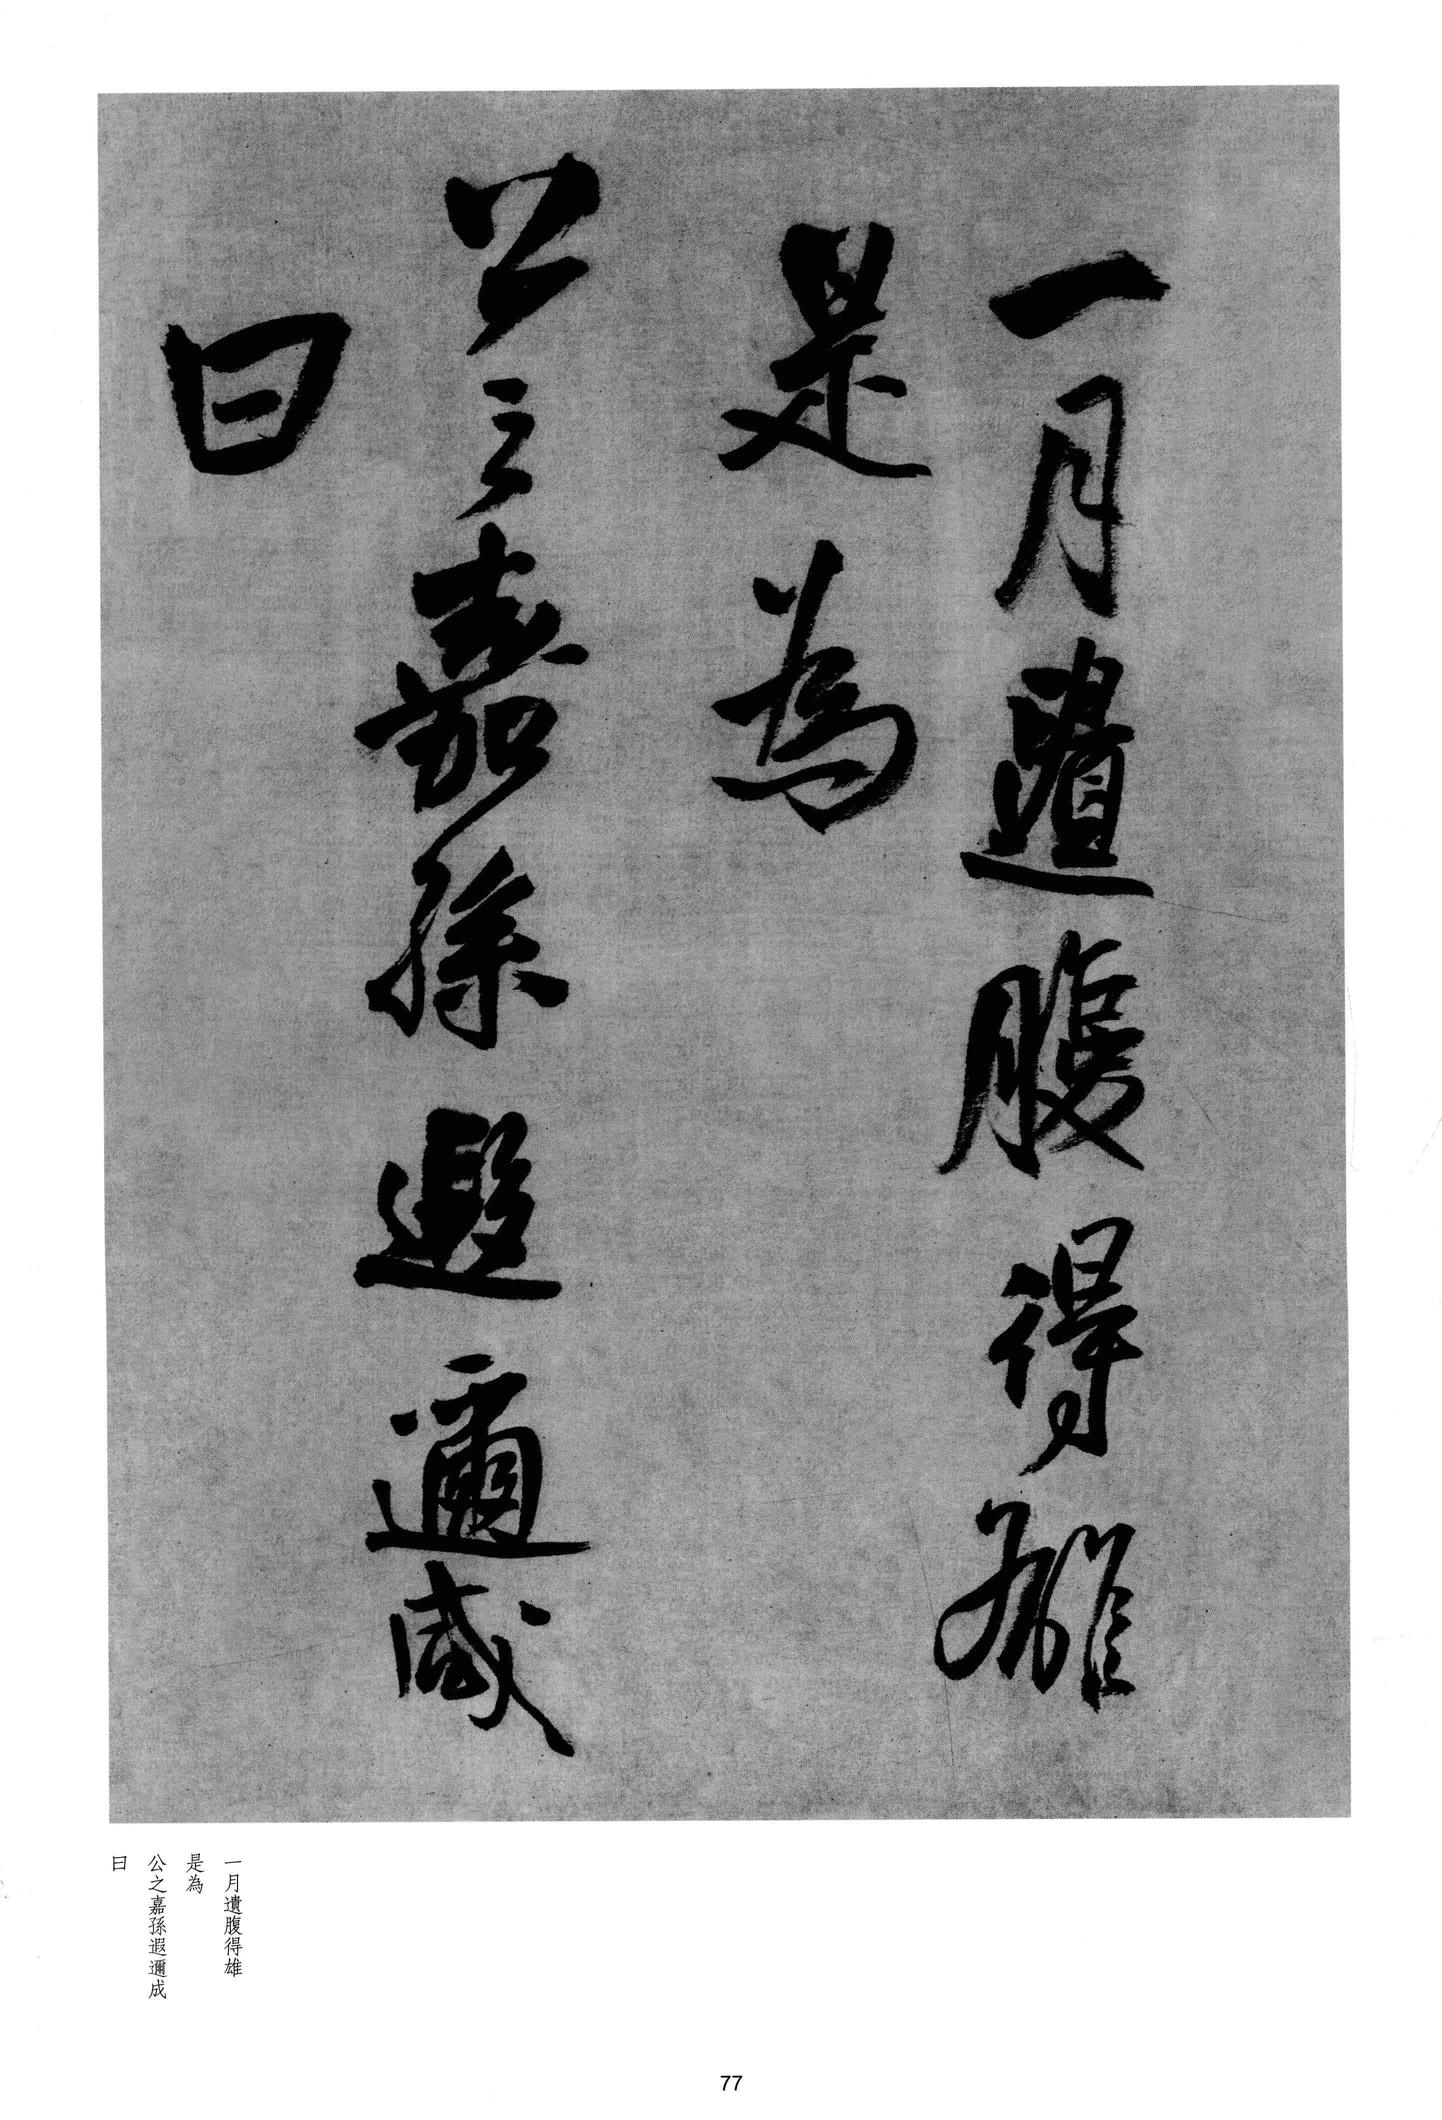 一月遺腹得雄
是為
公之嘉孫遐邇咸
曰
一月遺腹得雄
是為
公之嘉孫遐邇成
曰
77